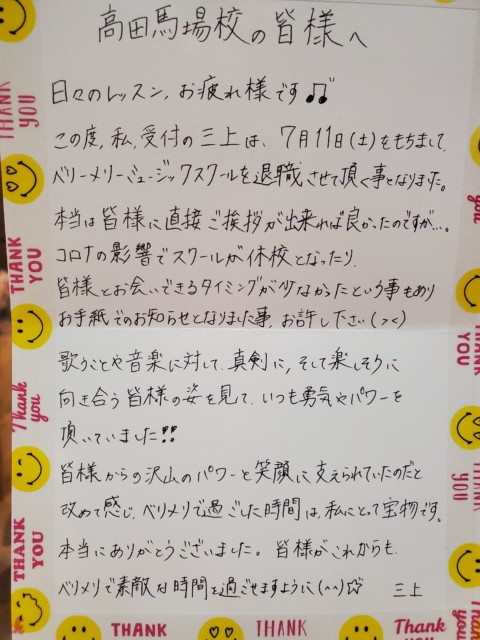 高田馬場校の皆様へ
日々のレッスン、お疲れ様です♫
この度、私、受付の三上は、7月11日(土)をもちまして、
ベリーメリーミュージックスクールを退職させて頂く事となりました。
本当は皆様に直接ご挨拶が出来れば良かったのですが…。
コロナの影響でスクールが休校となったり、
皆様とお会いできるタイミングが少なかったという事もあり
お手紙でのお知らせとなりました事、お許し下さい(><)
歌うことや音楽に対して、真剣に、そして楽しそうに
向き合う皆様の姿を見て、いつも勇気やパワーを
頂いていました!!
皆様からの沢山のパワーと笑顔に支えられていたのだと
改めて感じ、ベリメリで過ごした時間は、私にとって宝物です。
本当にありがとうございました。皆様がこれからも、
ベリメリで素敵な時間を過ごせますように(^^)☆
三上
THANK YOU
THANK YOU
Thank you
THANK YOU
you
THANK YOU
THANK YOU
THANK
THANK
Thank you